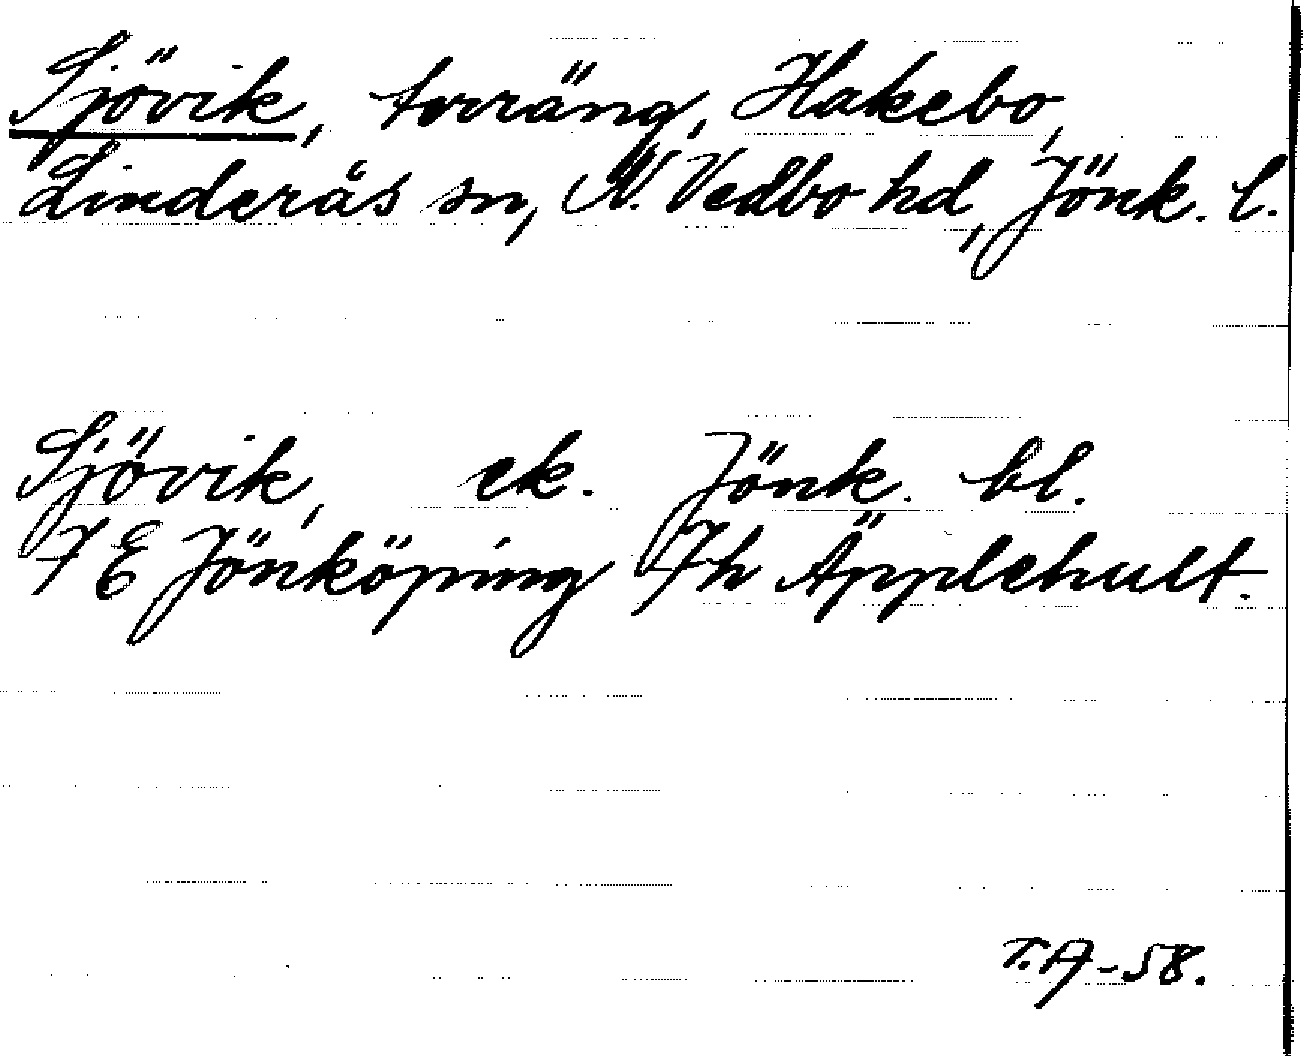 Sjövik, torräng, Hakebo,
Linderås sn, N. Vedbo hd, Jönk. l.
Sjövik, ek. Jönk. bl.
7 E Jönköping 7h Äpplehult.
T.A-58.